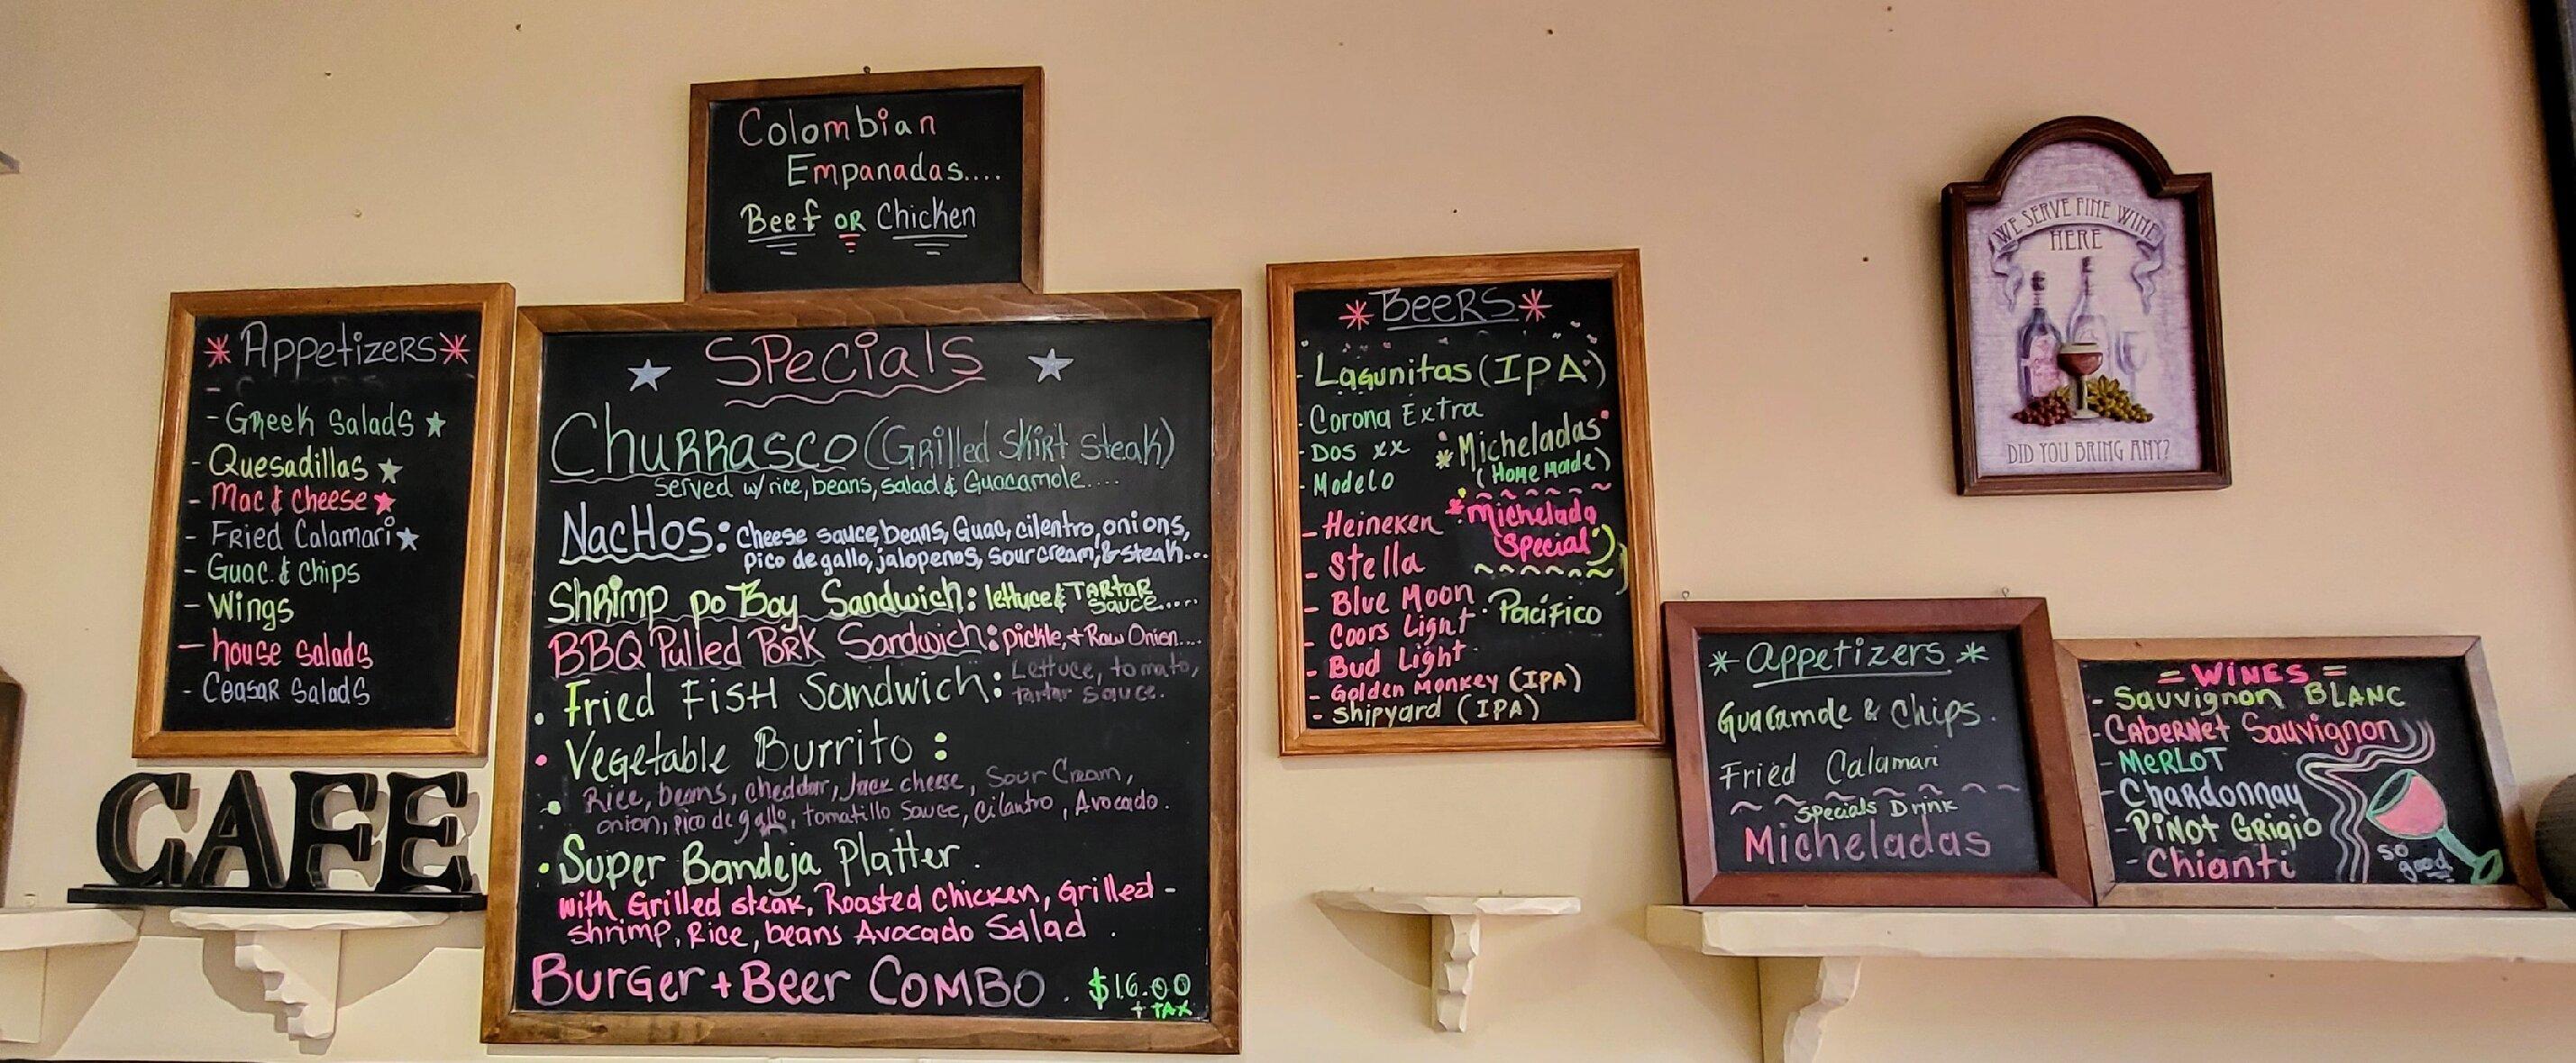 Colombian
Empanadas....
Beef OR Chicken
* Appetizers *
- Greek Salads ★
- Quesadillas ★
- Mac & Cheese ★
- Fried Calamari ★
- Guac. & Chips
- Wings
- house Salads
- Ceasar Salads
CAFE
★ Specials ★
Churrasco (Grilled Skirt Steak)
Served w/ rice, beans, salad & Guacamole....
NacHos: Cheese sauce, beans, Guac, cilentro, onions,
Pico de gallo, jalopenos, sour cream, & steak...
Shrimp po Boy Sandwich: lettuce & TARTAR
Sauce.....
BBQ Pulled Pork Sandwich: pickle, + Raw Onion....
• Fried FisH Sandwich: Lettuce, tomato,
tartar sauce.
• Vegetable Burrito :
• Rice, beans, cheddar, Jack cheese, Sour Cream,
onion, pico de gallo, tomatillo Sauce, Cilantro, Avocado.
• Super Bandeja Platter.
with Grilled steak, Roasted Chicken, Grilled -
shrimp, Rice, beans Avocado Salad .
Burger + Beer COMBO . $16.00
+ TAX
* Beers *
- Lagunitas (IPA)
- Corona Extra
- Dos xx
- Modelo
- Heineken
- Stella
- Blue Moon
- Coors Light
- Bud Light
- Golden Monkey (IPA)
- Shipyard (IPA)
* Micheladas
(Home made)
* Michelada
(Special)
• Pacifico
WE SERVE FINE WINE
HERE
DID YOU BRING ANY?
* Appetizers *
Guacamole & Chips.
Fried Calamari
Specials Drink
Micheladas
= WINES =
- Sauvignon BLANC
- CABERNet Sauvignon
- MeRLOT
- Chardonnay
- PiNOT GRigio
- Chianti
so
good